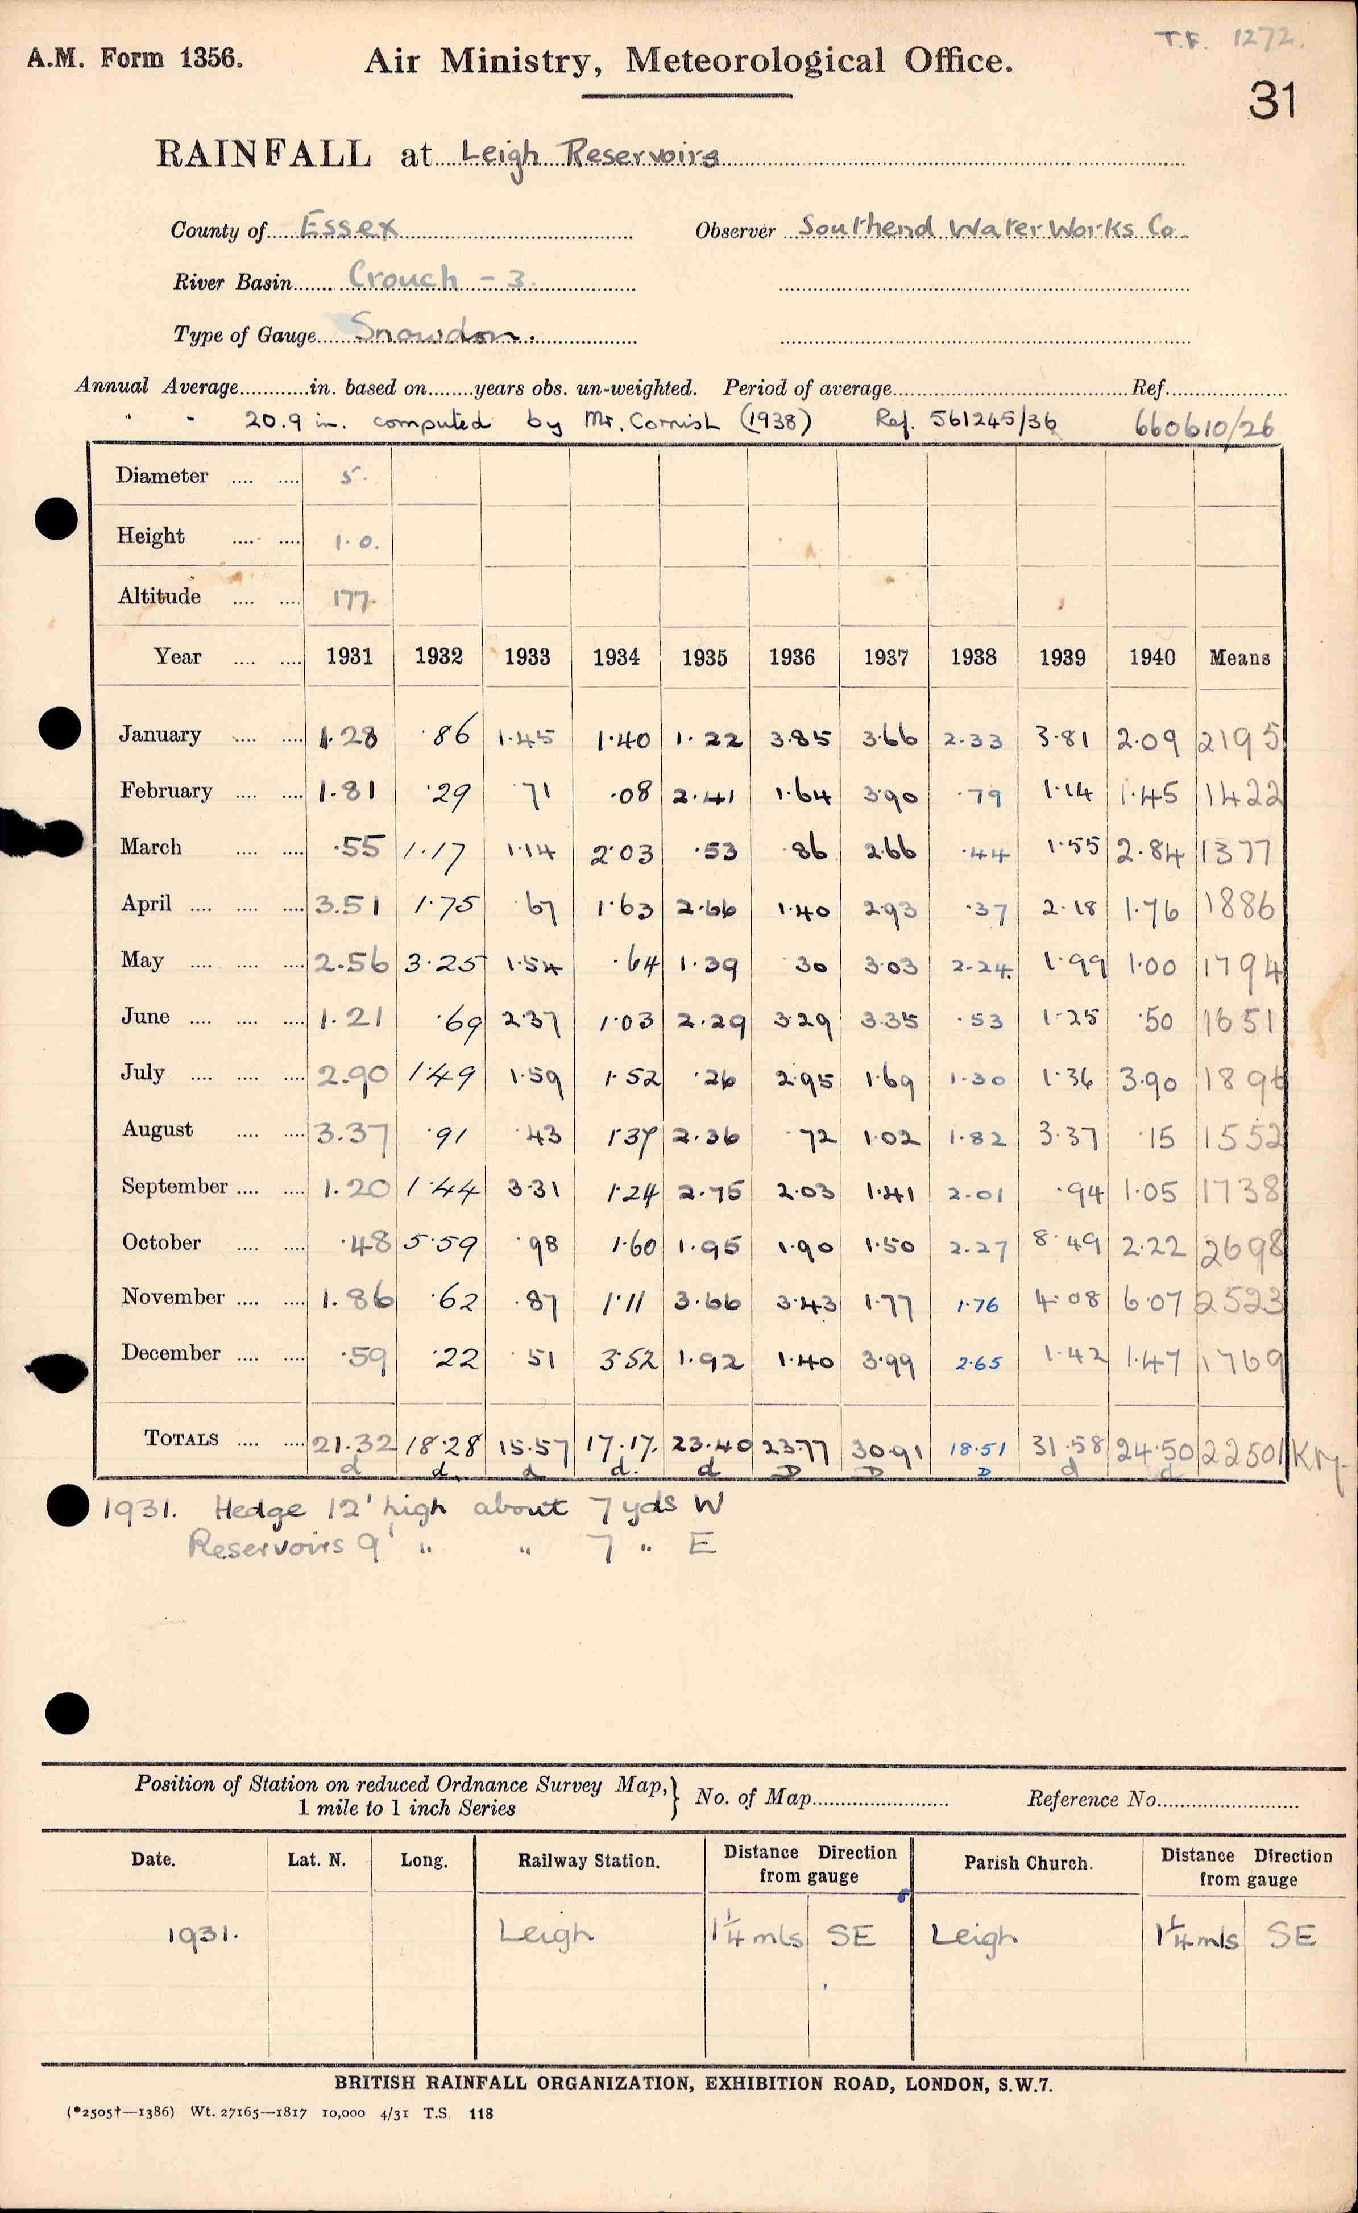 T.F. 1272.
A.M. Form 1356. Air Ministry, Meteorological Office.
31
RAINFALL at Leigh Reservoirs
County of Essex Observer Southend Water Works Co.
River Basin Crouch - 3.
Type of Gauge Snowdon.
Annual Average in. based on years obs. un-weighted. Period of average Ref.
" " 20.9 in. computed by Mr. Cornish (1938) Ref. 561245/36 660610/26
Diameter 5.
Height 1.0.
Altitude 177
Year 1931 1932 1933 1934 1935 1936 1937 1938 1939 1940 Means
January 1.28 .86 1.45 1.40 1.22 3.85 3.66 2.33 3.81 2.09 2195
February 1.81 .29 .71 .08 2.41 1.64 3.90 .79 1.14 1.45 1422
March .55 1.17 1.14 2.03 .53 .86 2.66 .44 1.55 2.84 1377
April 3.51 1.75 .67 1.63 2.66 1.40 2.93 .37 2.18 1.76 1886
May 2.56 3.25 1.54 .64 1.39 .30 3.03 2.24 1.99 1.00 1794
June 1.21 .69 2.37 1.03 2.29 3.29 3.35 .53 1.25 .50 1651
July 2.90 1.49 1.59 1.52 .26 2.95 1.69 1.30 1.36 3.90 1896
August 3.37 .91 .43 1.37 2.36 .72 1.02 1.82 3.37 .15 1552
September 1.20 1.44 3.31 1.24 2.75 2.03 1.41 2.01 .94 1.05 1738
October .48 5.59 .98 1.60 1.95 1.90 1.50 2.27 8.49 2.22 2698
November 1.86 .62 .87 1.11 3.66 3.43 1.77 1.76 4.08 6.07 2523
December .59 .22 .51 3.52 1.92 1.40 3.99 2.65 1.42 1.47 1769
TOTALS 21.32 18.28 15.57 17.17. 23.40 23.77 30.91 18.51 31.58 24.50 22501 KM
d d d d. d D D D d d
1931. Hedge 12' high about 7 yds W
Reservoirs 9' " " 7 " E
Position of Station on reduced Ordnance Survey Map, } No. of Map Reference No.
1 mile to 1 inch Series
Date. Lat. N. Long. Railway Station. Distance Direction from gauge Parish Church. Distance Direction from gauge
1931. Leigh 1¼ mls SE Leigh 1¼ mls SE
BRITISH RAINFALL ORGANIZATION, EXHIBITION ROAD, LONDON, S.W.7.
(*2505†—1386) Wt. 27165—1817 10,000 4/31 T.S. 118